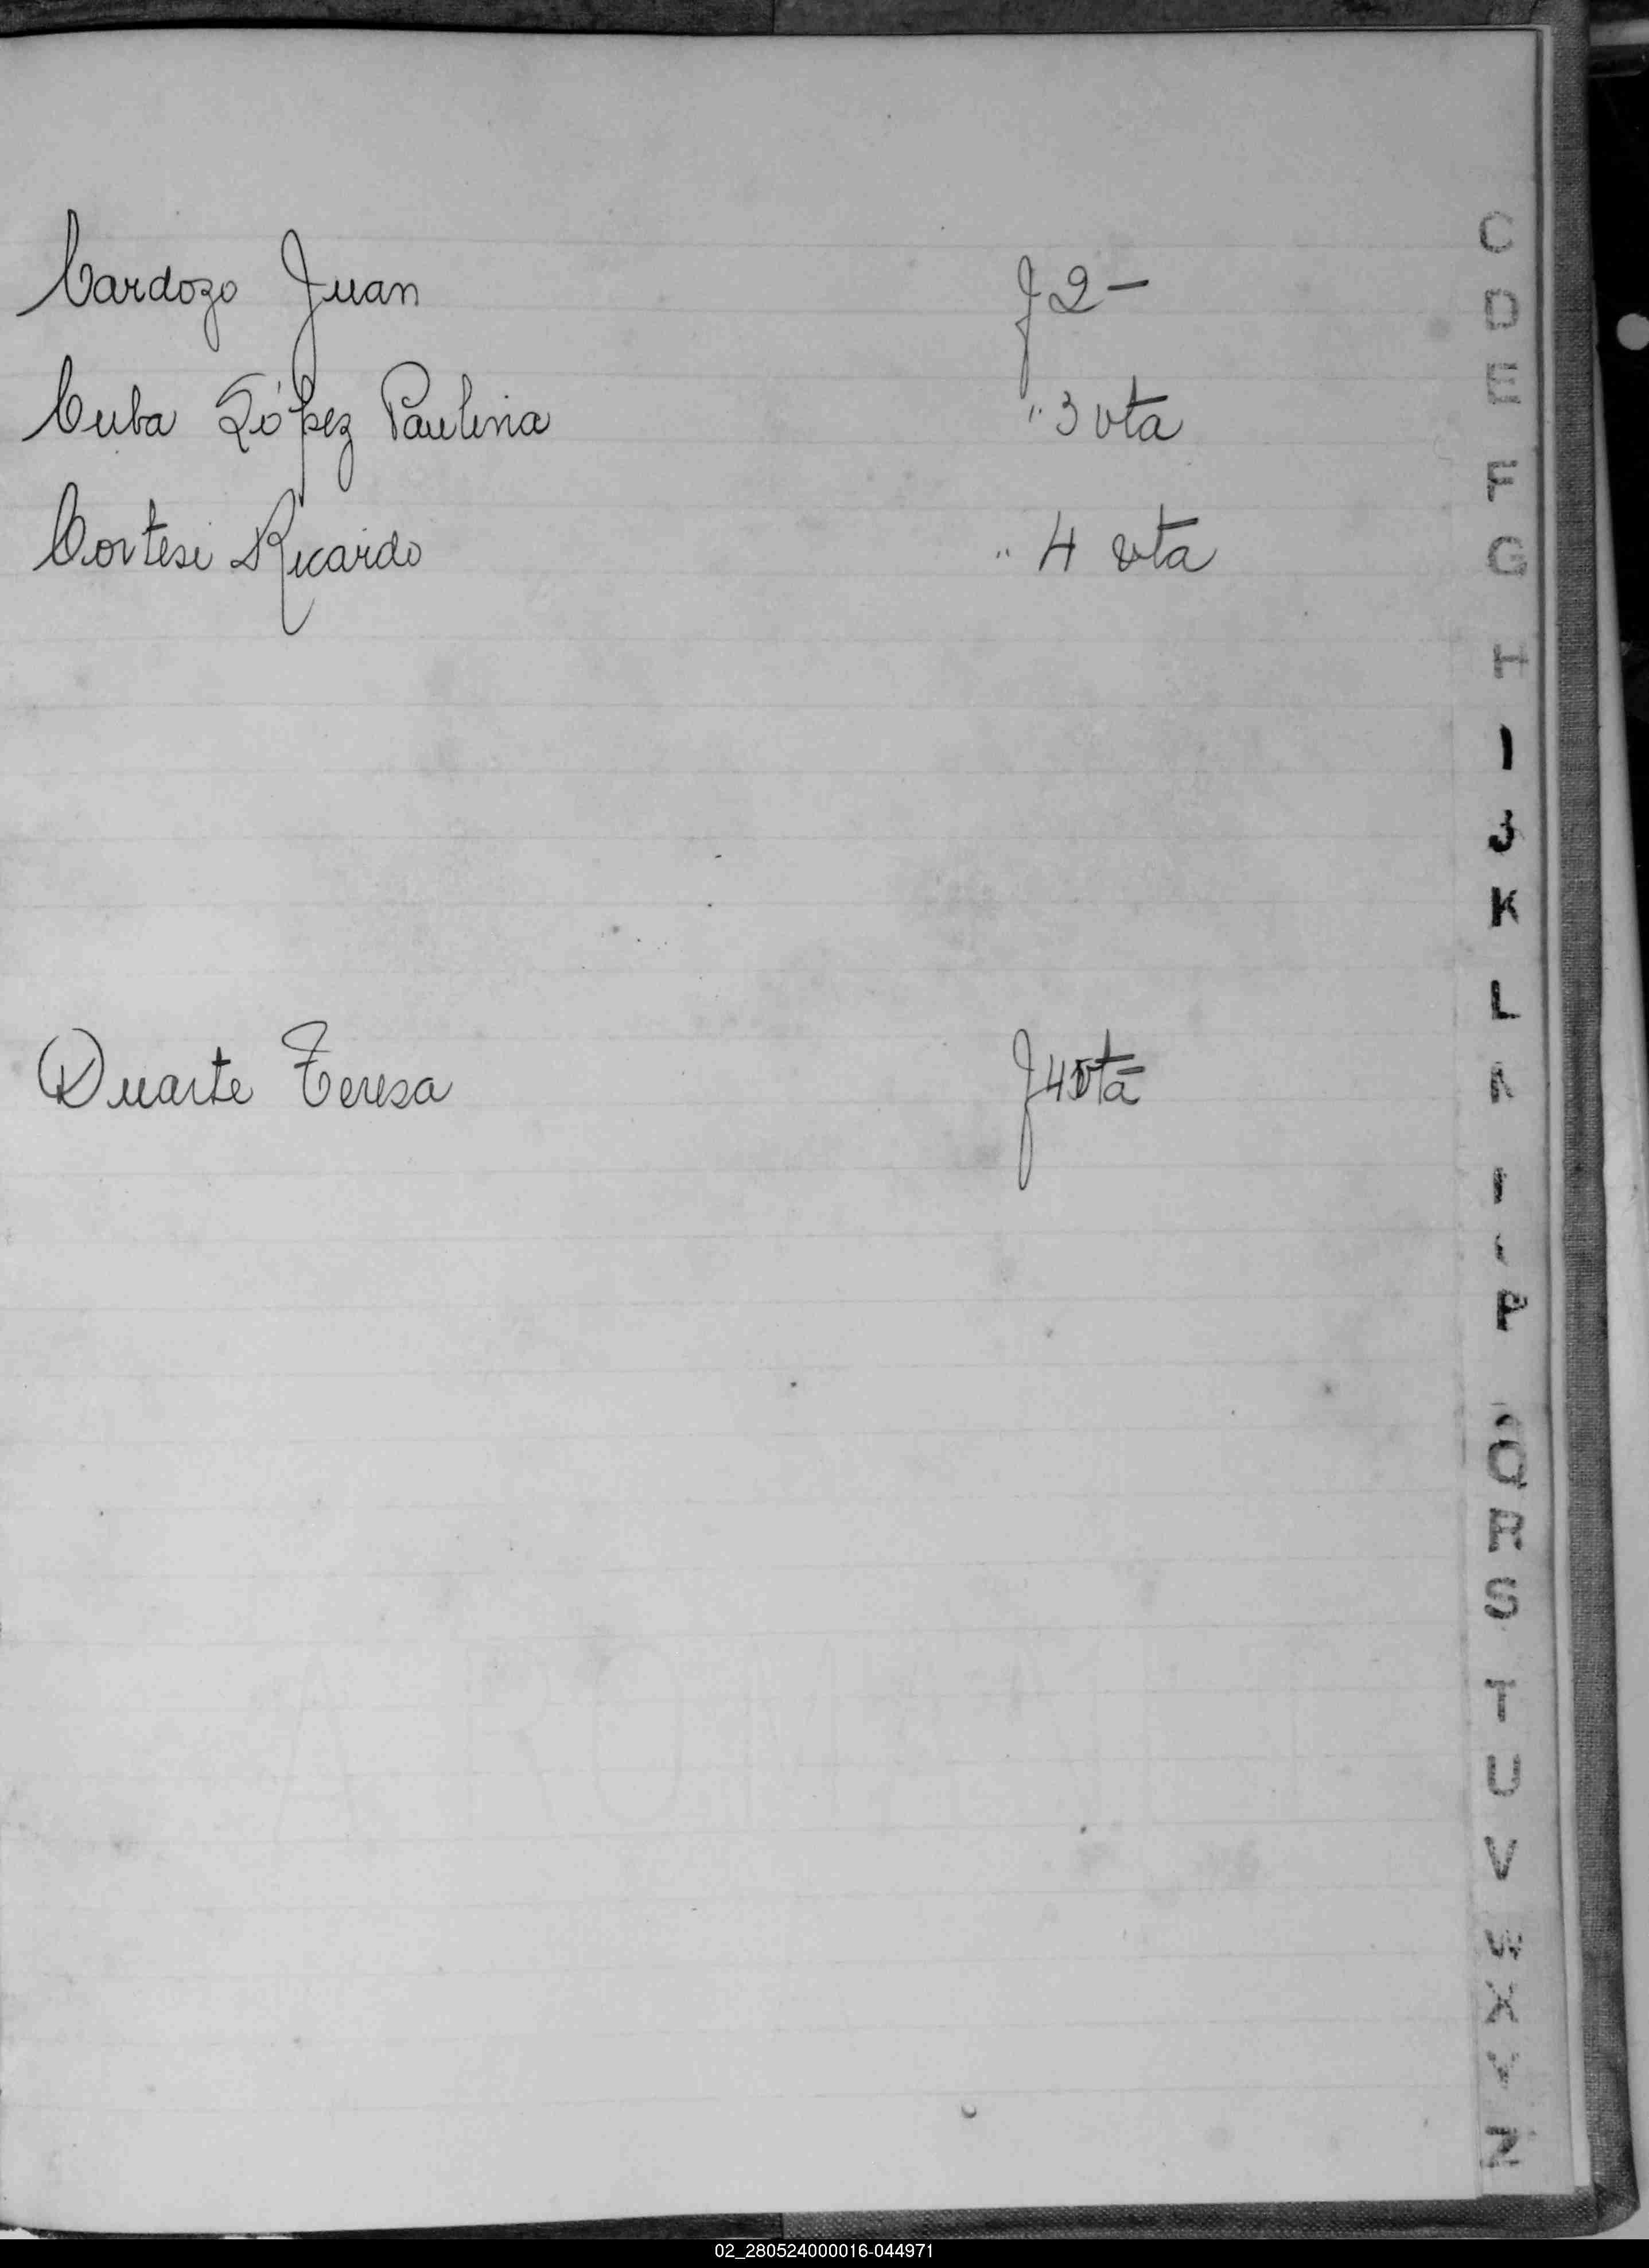 Cardozo Juan f 2 -
Cuba López Paulina " 3 vta
Cortesi Ricardo " 4 vta
Duarte Teresa f 4 vta
C
D
E
F
G
H
I
J
K
L
P
Q
R
S
T
U
V
W
X
Y
Z
02_280524000016-044971